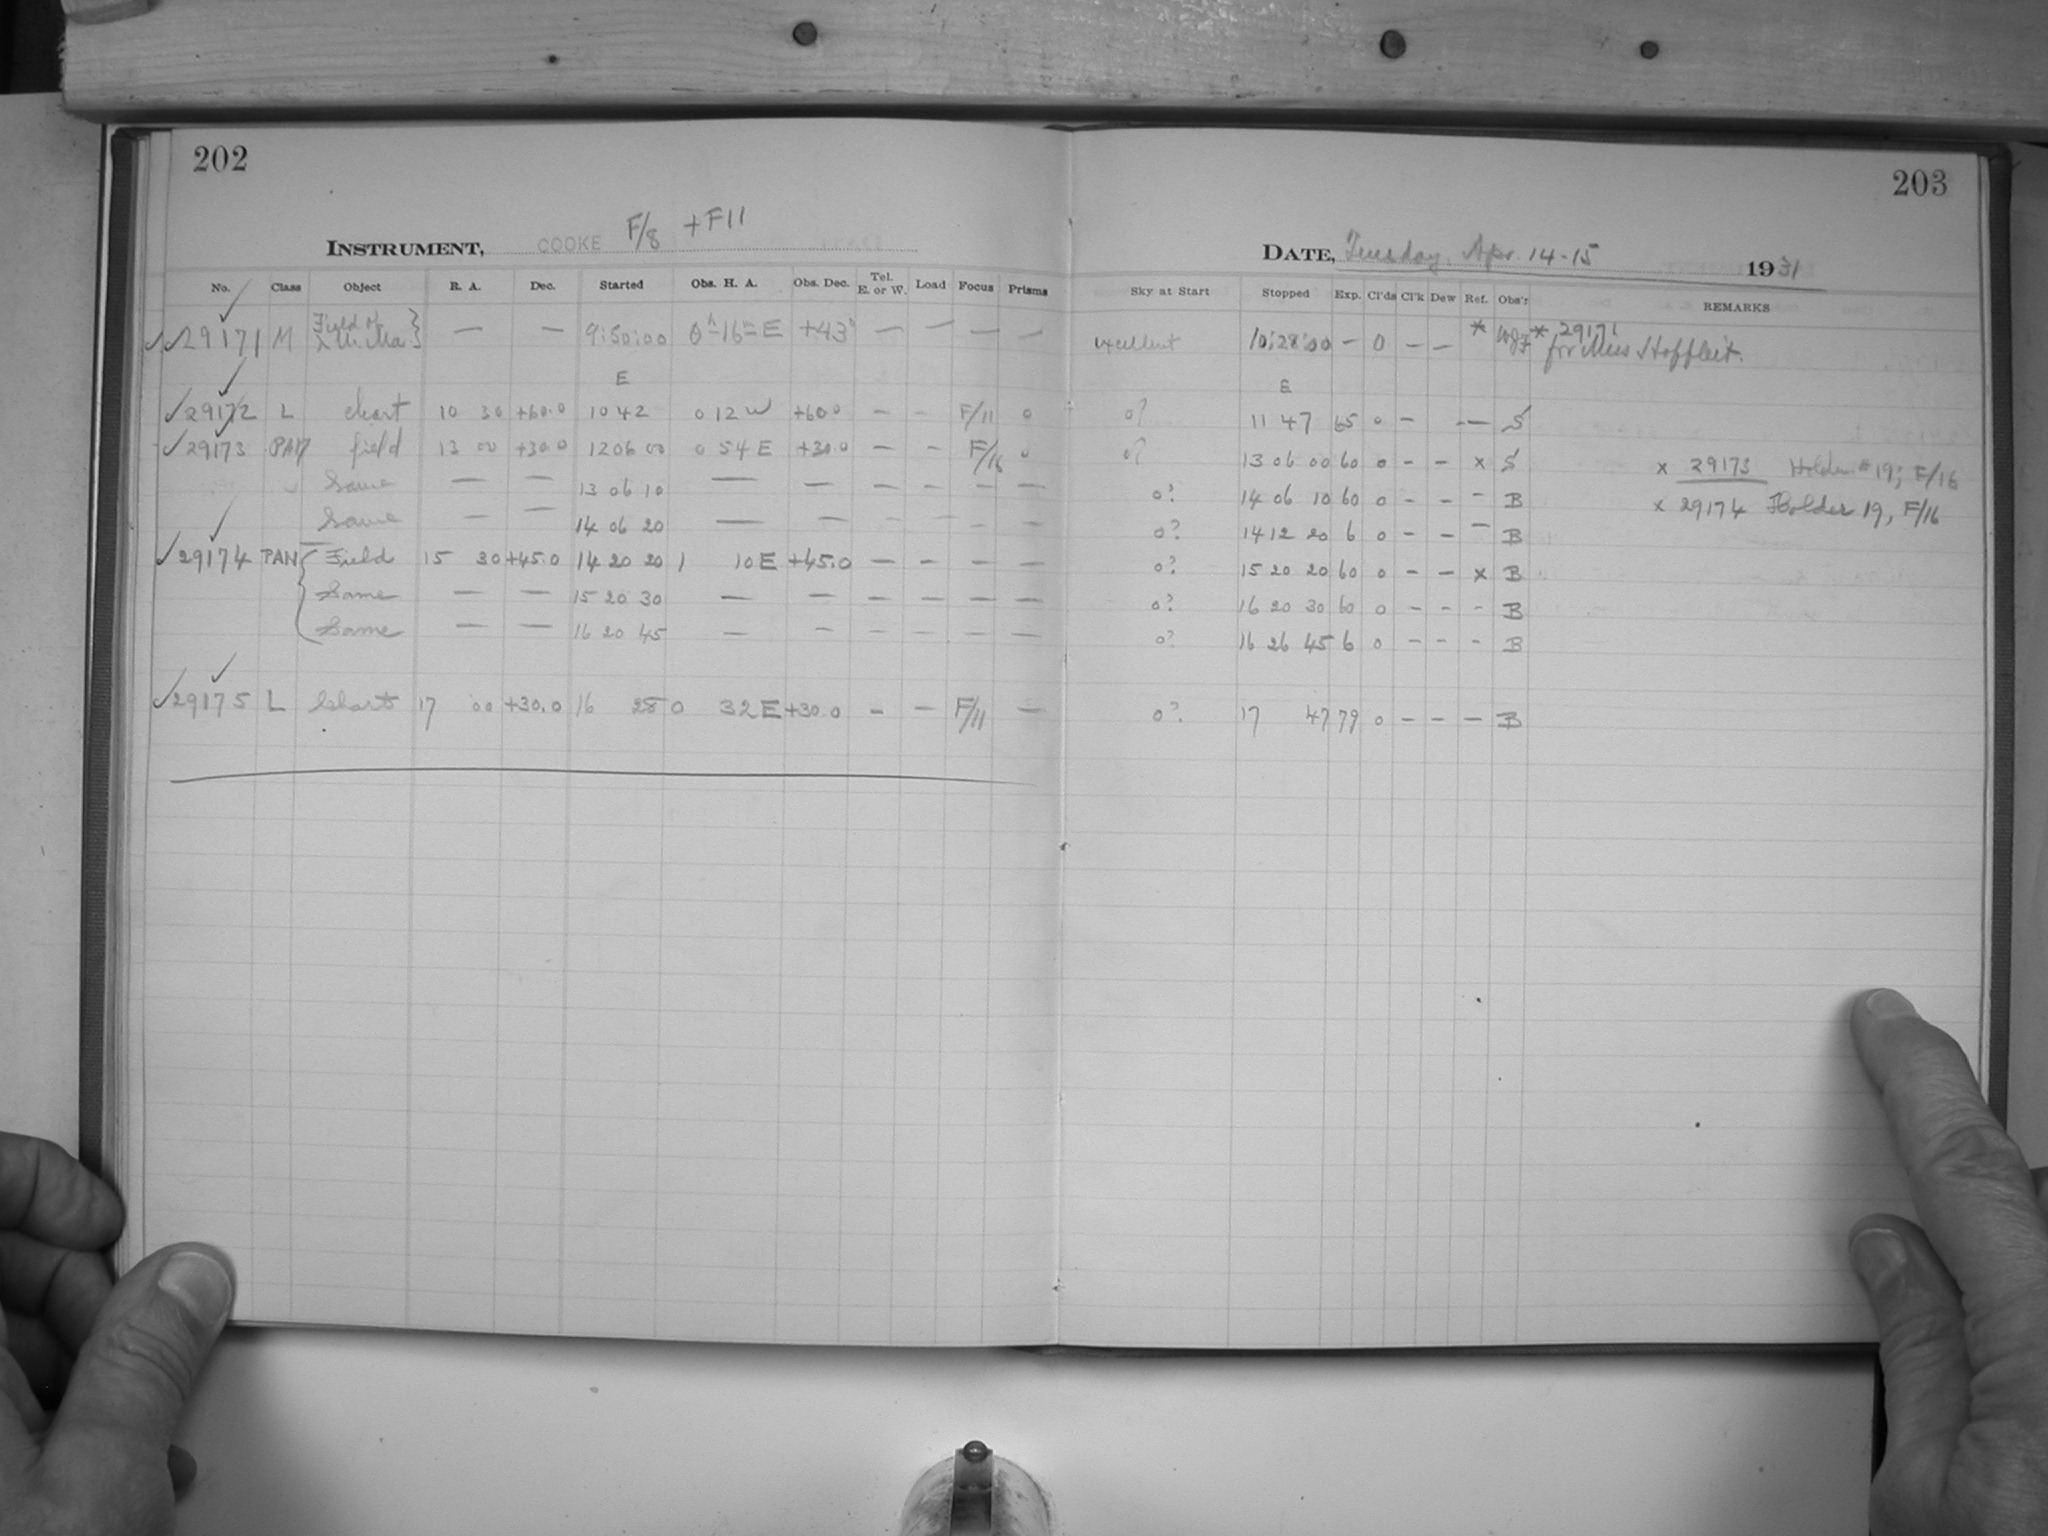 202
F/8 + F11
INSTRUMENT, COOKE
No. Class Object R. A. Dec. Started Obs. H. A. Obs. Dec. Tel. E. or W. Load Focus Prisms
29171 M Field of — — 9:50:00 0h-16m E +43° — — — —
E
29172 L chart 10 30 +60.0 10 42 0 12 W +60.0 — - F/11 0
29173 PAN field 13 00 +30.0 12 06 00 0 54 E +30.0 — — F/16 0
Same — — 13 06 10 — — - - - —
Same — — 14 06 20 — — - - - —
29174 PAN Field 15 30 +45.0 14 20 20 1 10 E +45.0 — — — —
Same — — 15 20 30 — — — — — —
Same — — 16 20 45 — — - - — —
29175 L Chart 17 00 +30.0 16 28 0 32 E +30.0 - — F/11 —
203
DATE, Tuesday, Apr. 14-15 1931
Sky at Start Stopped Exp. Cl'ds Cl'k Dew Ref. Obs'r REMARKS
excellent 10:28:00 — 0 — — * * 29171
for Miss Hoffleit.
E
0? 11 47 65 0 — -— S
0? 13 06 00 60 0 - - x S x 29173 Holder #19; F/16
0? 14 06 10 60 0 - - - B x 29174 Holder 19, F/16
0? 14 12 20 6 0 - - - B
0? 15 20 20 60 0 - — x B
0? 16 20 30 60 0 - - - B
0? 16 26 45 6 0 - - - B
0? 17 47 79 0 - - — B